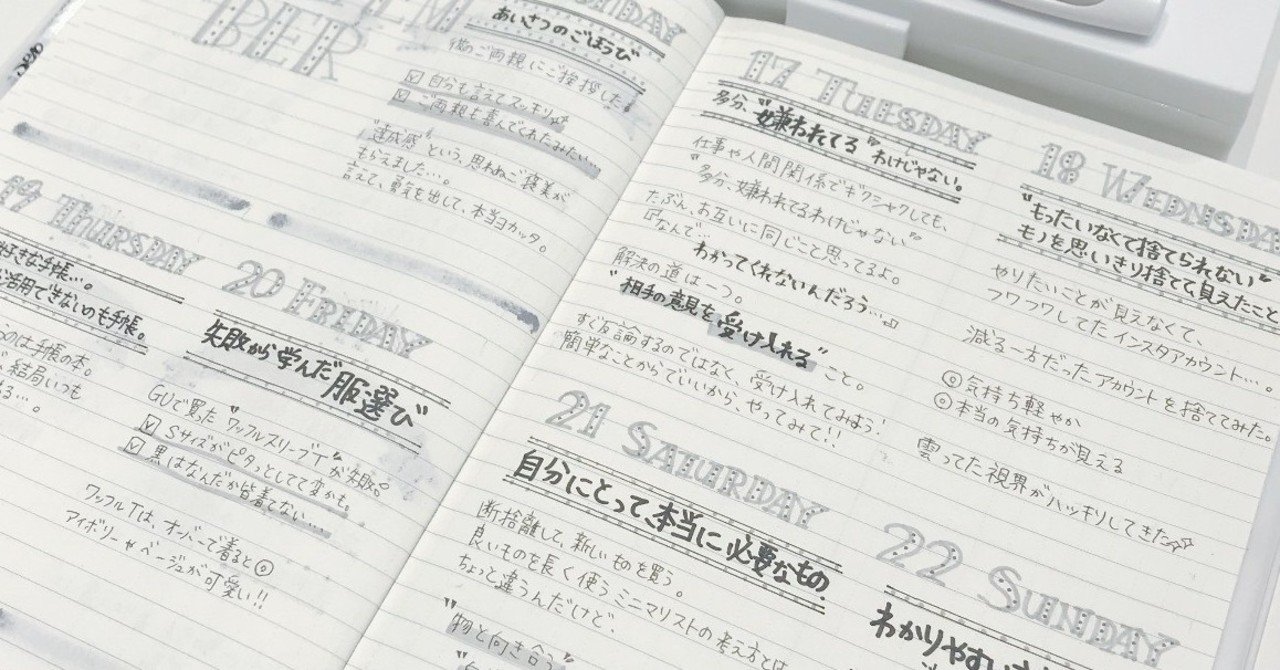 BER
DAY
あいさつのごほうび
彼のご両親にご挨拶した。
☑ 自分も言えてスッキリ
☑ ご両親も喜んでくれたみたい…
"達成感"という、思わぬご褒美が
もらえました…。
言えて、勇気を出して、本当ヨカッタ。
17 TUESDAY
多分、"嫌われてる"わけじゃない。
仕事や人間関係でギクシャクしても、
"多分、嫌われてるわけじゃない"
たぶん、お互いに同じこと思ってるよ。
『なんで…
わかってくれないんだろう…。』
解決の道は一つ。
"相手の意見を受け入れる"こと。
すぐ反論するのではなく、受け入れてみよう!
簡単なことからでいいから、やってみて!!
18 WEDNESDA
"もったいなくて捨てられない"
モノを思いきり捨てて、見えたこと
やりたいことが見えなくて、
フワフワしてたインスタアカウント…。
減る一方だったアカウントを捨ててみた。
◎気持ち軽やか
◎本当の気持ちが見える
曇ってた視界がハッキリしてきた☆
19 THURSDAY
好きな手帳…。
活用できないのも手帳。
のは手帳の本。
、結局いつも
る…。
20 FRIDAY
失敗から学んだ服選び
GUで買った"ワッフルスリーブT"が失敗。
☑ Sサイズがピタッとしててまかも。
☑ 黒はなんだか皆着てない…
ワッフルTは、オーバーで着ると◎
アイボリーやベージュが可愛い!!
21 SATURDAY
自分にとって、本当に必要なもの。
断捨離して、新しいものを買う。
良いものを長く使うミニマリストの考え方とは
ちょっと違うんだけど、
"物と向き合う"
22 SUNDAY
わかりやすい